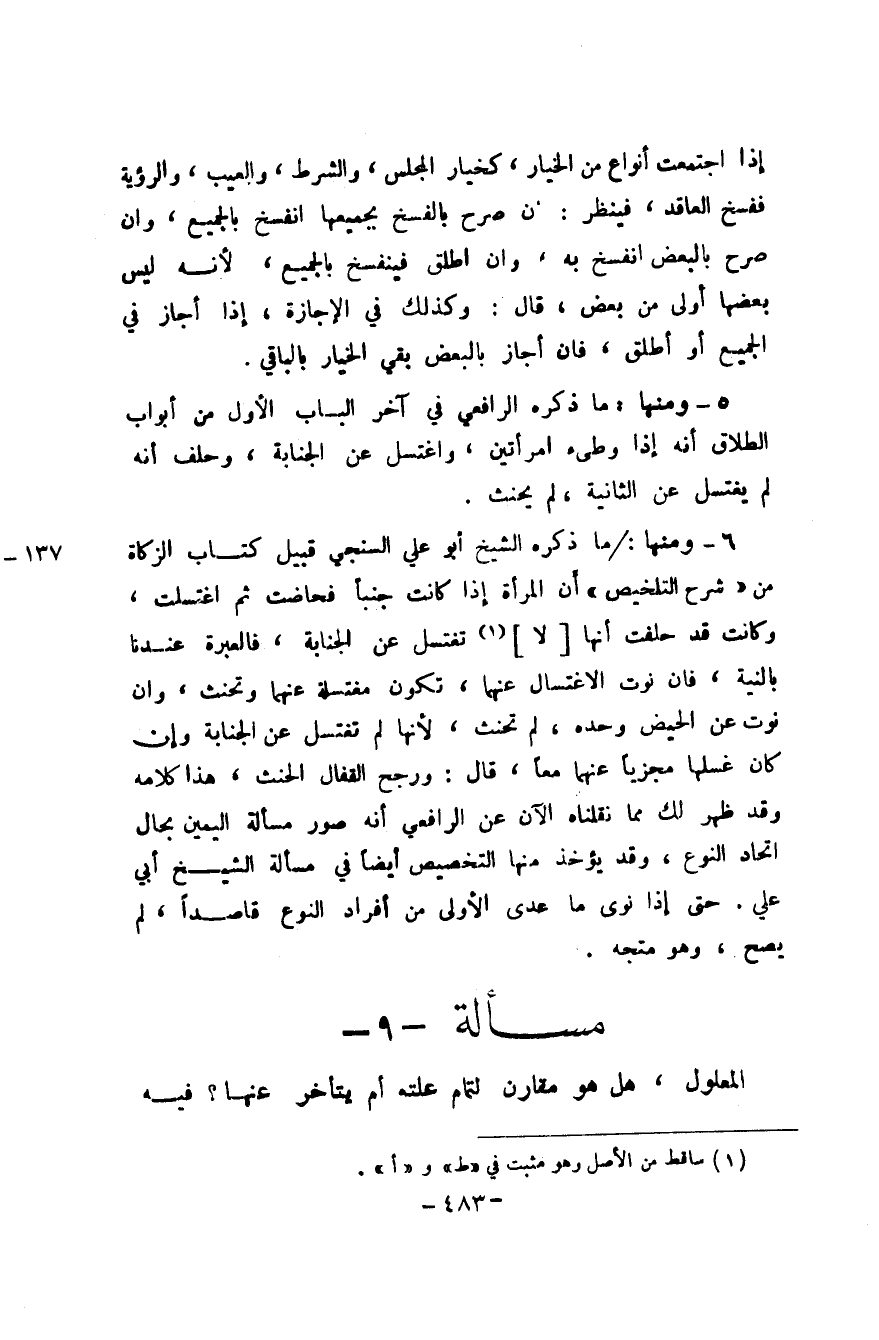 إذا اجتمعت أنواع من الخيار ، كخيار المجلس ، والشرط ، والعيب ، والرؤية
ففسخ العاقد ، فينظر : ن صرح بالفسخ بجميعها انفسخ بالجميع ، وان
صرح بالبعض انفسخ به ، وان اطلق فينفسخ بالجميع ، لأنه ليس
بعضها أولى من بعض ، قال : وكذلك في الإجازة ، إذا أجاز في
الجميع أو أطلق ، فان أجاز بالبعض بقي الخيار بالباقي .
٥ – ومنها : ما ذكره الرافعي في آخر الباب الأول من أبواب
الطلاق أنه إذا وطىء امرأتين ، واغتسل عن الجنابة ، وحلف أنه
لم يغتسل عن الثانية ، لم يحنث .
٦ – ومنها :/ما ذكره الشيخ أبو علي السنجي قبيل كتاب الزكاة
١٣٧ –
من « شرح التلخيص » أن المرأة إذا كانت جنباً فحاضت ثم اغتسلت ،
وكانت قد حلفت أنها [ لا ] (١) تغتسل عن الجنابة ، فالعبرة عندنا
بالنية ، فان نوت الاغتسال عنهما ، تكون مغتسلة عنهما وتحنث ، وان
نوت عن الحيض وحده ، لم تحنث ، لأنها لم تغتسل عن الجنابة وإن
كان غسلها مجزياً عنهما معاً ، قال : ورجح القفال الحنث ، هذا كلامه
وقد ظهر لك مما نقلناه الآن عن الرافعي أنه صور مسألة اليمين بحال
اتحاد النوع ، وقد يؤخذ منها التخصيص أيضاً في مسألة الشيخ أبي
علي . حتى إذا نوى ما عدى الأولى من أفراد النوع قاصداً ، لم
يصح ، وهو متجه .
مسألة – ٩ –
المعلول ، هل هو مقارن لتمام علته أم يتأخر عنها ؟ فيه
(١) ساقط من الأصل وهو مثبت في «ط» و «أ» .
– ٤٨٣ –